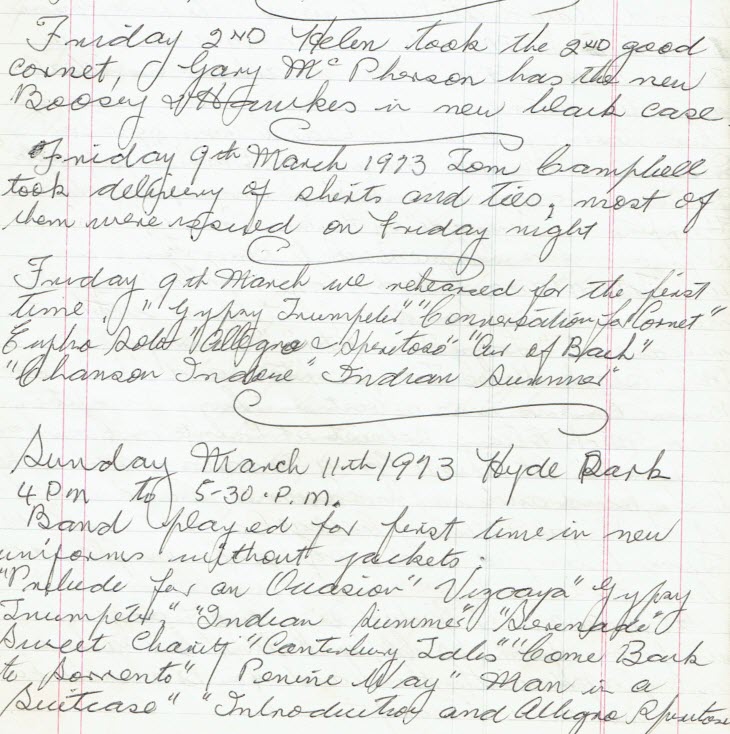 Friday 2ND Helen took the 2ND good
cornet, Gary Mc Pherson has the new
Boosey & Hawkes in new black case.
Friday 9th March 1973 Tom Campbell
took delivery of shirts and ties, most of
them were issued on Friday night
Friday 9th March we rehearsed for the first
time, "Gypsy Trumpeter" "Conversation for Cornet"
Eupho Solo "Allegro Spiritoso" "Air of Bach"
"Chanson Indoue" Indian Summer"
Sunday March 11th 1973 Hyde Park
4 Pm to 5-30.P.M.
Band played for first time in new
uniforms without jackets.
"Prelude for an Occasion" Vizcaya" Gypsy
Trumpeter," "Indian Summer" "Serenade"
Sweet Charity "Canterbury Tales" "Come Back
to Sorrento" Penine Way" Man in a
Suitcase" "Introduction and Allegro Spiritoso